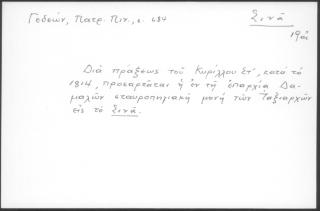 Γεδεών, Πατρ. Πιν., σ. 684
Σινᾶ
19ος
Διὰ πράξεως τοῦ Κυρίλλου ΣΤ΄, κατὰ τὸ
1814, προσαρτᾶται ἡ ἐν τῇ ἐπαρχίᾳ Δα-
μαλῶν σταυροπηγιακὴ μονὴ τῶν Ταξιαρχῶν
εἰς τὸ Σινᾶ.